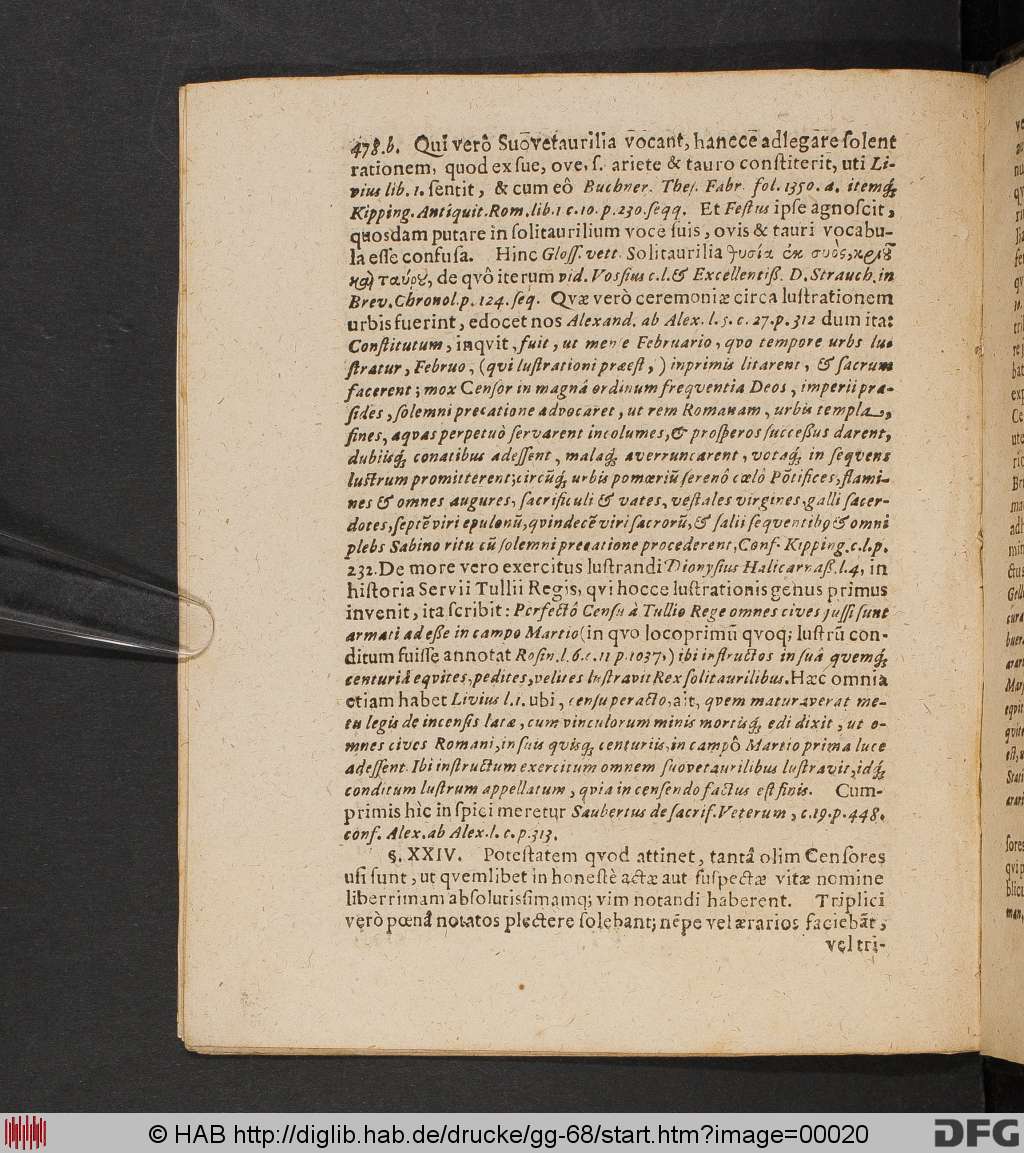 478.b. Qui verô Suōvetaurilia vocant, hancce adlegāre ſolent
rationem, quod ex ſue, ove, ſ. ariete & tauro conſtiterit, uti Li-
vius lib. 1. ſentit, & cum eô Buchner. Theſ. Fabr. fol. 1350. a. itemq́;
Kipping. Antiquit. Rom. lib. 1 c. 10. p. 230. ſeqq. Et Feſtus ipſe agnoſcit,
quosdam putare in ſolitaurilium voce ſuis, ovis & tauri vocabu-
la eſſe confuſa. Hinc Gloſſ. vett. Solitaurilia θυσία ἐκ συὸς, κριȣ͂
καὶ ταύρȣ, de qvô iterum vid. Voſſius c. l. & Excellentiß. D. Strauch. in
Brev. Chronol. p. 124. ſeq. Qvæ verò ceremoniæ circa luſtrationem
urbis fuerint, edocet nos Alexand. ab Alex. l. 5. c. 27. p. 312 dum ita:
Conſtitutum, inqvit, fuit, ut menſe Februario, qvo tempore urbs lu-
ſtratur, Februo, (qvi luſtrationi præeſt,) inprimis litarent, & ſacrum
facerent; mox Cenſor in magnâ ordinum freqventia Deos, imperii præ-
ſides, ſolemni precatione advocaret, ut rem Romanam, urbis templa,
fines, aqvas perpetuò ſervarent incolumes, & proſperos ſucceßus darent,
dubiisq́; conatibus adeſſent, malaq́; averruncarent, votaq́; in ſeqvens
luſtrum promitterent; circūq́; urbis pomœriū ſerenô cœlô Pōtifices, flami-
nes & omnes augures, ſacrificuli & vates, veſtales virgines, galli ſacer-
dotes, ſeptēviri epulonū, qvindecēviri ſacrorū, & ſalii ſeqventibꝰ & omni
plebs Sabino ritu cū ſolemni precatione procederent, Conf. Kipping. c. l. p.
232. De more vero exercitus luſtrandi Dionyſius Halicarnaß. l. 4, in
hiſtoria Servii Tullii Regis, qvi hocce luſtrationis genus primus
invenit, ita ſcribit: Perfectô Cenſu à Tullio Rege omnes cives juſſi ſunt
armati adeße in campo Martio (in qvo loco primū qvoq; luſtrū con-
ditum fuiſſe annotat Roſin. l. 6. c. 11 p. 1037.) ibi inſtructos in ſuâ quemq́;
centuriâ eqvites, pedites, velites luſtravit Rex ſolitaurilibus. Hæc omnia
etiam habet Livius l. 1. ubi, cenſu peracto, ait, qvem maturaverat me-
tu legis de incenſis latæ, cum vinculorum minis mortisq́; edi dixit, ut o-
mnes cives Romani, in ſuis quisq́; centuriis, in campô Martio prima luce
adeſſent. Ibi inſtructum exercitum omnem ſuovetaurilibus luſtravit, idq́;
conditum luſtrum appellatum, qvia in cenſendo factus eſt finis. Cum-
primis hìc inſpici meretur Saubertus de ſacrif. Veterum, c. 19. p. 448.
conf. Alex. ab Alex. l. c. p. 313.
§. XXIV. Poteſtatem qvod attinet, tantâ olim Cenſores
uſi ſunt, ut qvemlibet in honeſtè actæ aut ſuſpectæ vitæ nomine
liberrimam abſolutisſimamq; vim notandi haberent. Triplici
verò pœnâ notatos plectere ſolebant; nēpe vel ærarios faciebāt,
vel tri-
© HAB http://diglib.hab.de/drucke/gg-68/start.htm?image=00020
DFG